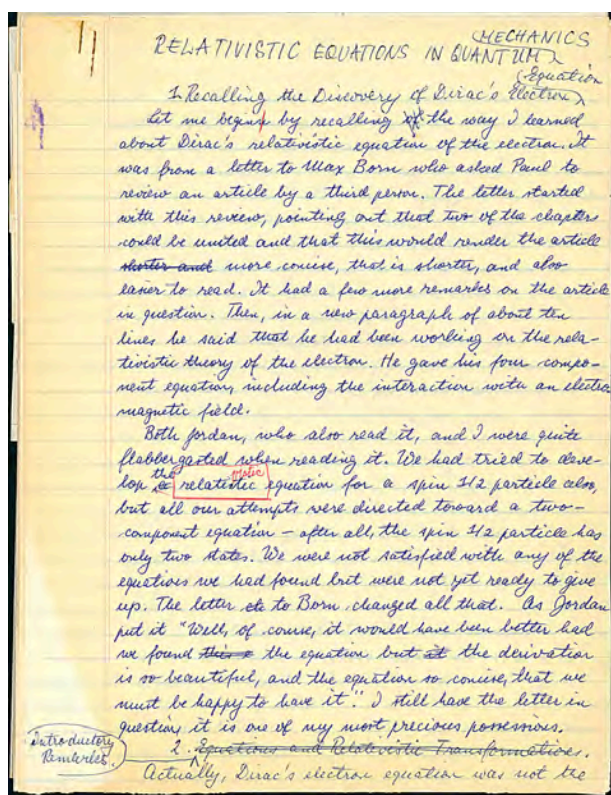 RELATIVISTIC EQUATIONS IN QUANTUM MECHANICS
1. Recalling the Discovery of Dirac's Electron Equation
Let me begin by recalling the way I learned
about Dirac's relativistic equation of the electron. It
was from a letter to Max Born who asked Paul to
review an article by a third person. The letter started
with this review, pointing out that two of the chapters
could be united and that this would render the article
shorter and more concise, that is shorter, and also
easier to read. It had a few more remarks on the article
in question. Then, in a new paragraph of about ten
lines he said that he had been working on the rela-
tivistic theory of the electron. He gave his four compo-
nent equation, including the interaction with an electro
magnetic field.
Both Jordan, who also read it, and I were quite
flabbergasted when reading it. We had tried to deve-
lop the relatistic equation for a spin 1/2 particle also,
but all our attempts were directed toward a two-
component equation – after all, the spin 1/2 particle has
only two states. We were not satisfied with any of the
equations we had found but were not yet ready to give
up. The letter to Born changed all that. As Jordan
put it "Well, of course, it would have been better had
we found the equation but the derivation
is so beautiful, and the equation so concise, that we
must be happy to have it." I still have the letter in
question, it is one of my most precious possessions.
Introductory
Remarks.
2. Equations and Relativistic Transformations.
Actually, Dirac's electron equation was not the